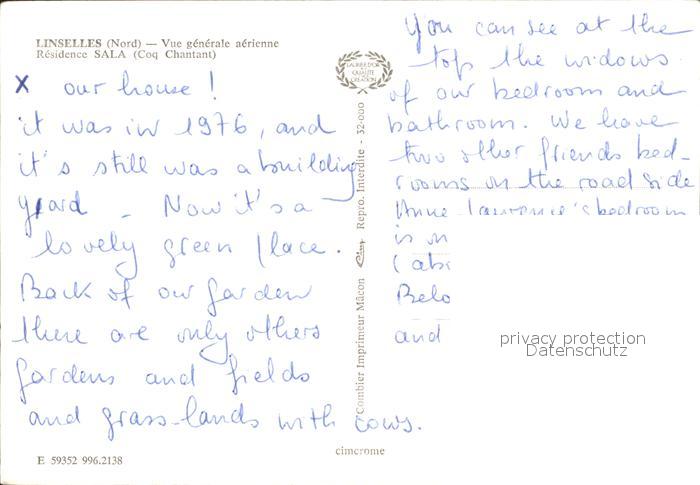 LINSELLES (Nord) — Vue générale aérienne
Résidence SALA (Coq Chantant)
x our house !
it was in 1976, and
it's still was a building
yard - Now it's a
lovely green place.
Back of our garden
there are only others
gardens and fields
and grass-lands with cows.
E 59352 996.2138
LAURIER D'OR
QUALITÉ
CREATION
Combier Imprimeur Mâcon Cim Repro. Interdite - 32-000
cimcrome
You can see at the
top the widows
of our bedroom and
bathroom. We have
two other friends bed-
rooms on the road side
Anne Laurence's bedroom
is
Belo
and
privacy protection
Datenschutz